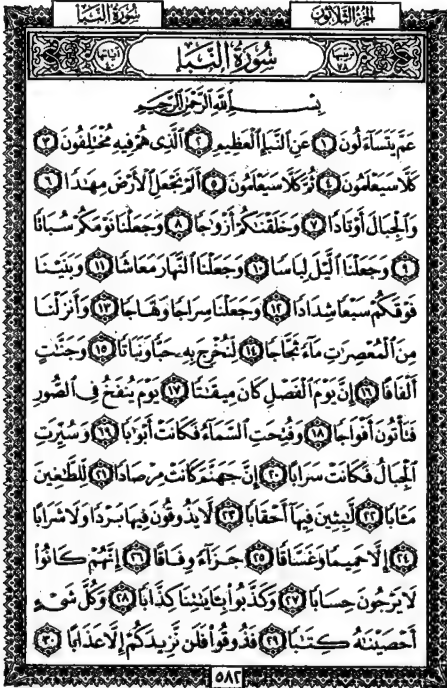 سُورَةُ النَّبَإِ
الجُزْءُ الثَّلَاثُونَ
سُورَةُ النَّبَإِ
بِسْمِ اللَّهِ الرَّحْمَٰنِ الرَّحِيمِ
عَمَّ يَتَسَآءَلُونَ ١ عَنِ ٱلنَّبَإِ ٱلْعَظِيمِ ٢ ٱلَّذِى هُمْ فِيهِ مُخْتَلِفُونَ ٣
كَلَّا سَيَعْلَمُونَ ٤ ثُمَّ كَلَّا سَيَعْلَمُونَ ٥ أَلَمْ نَجْعَلِ ٱلْأَرْضَ مِهَٰدًا ٦
وَٱلْجِبَالَ أَوْتَادًا ٧ وَخَلَقْنَٰكُمْ أَزْوَٰجًا ٨ وَجَعَلْنَا نَوْمَكُمْ سُبَاتًا
٩ وَجَعَلْنَا ٱلَّيْلَ لِبَاسًا ١٠ وَجَعَلْنَا ٱلنَّهَارَ مَعَاشًا ١١ وَبَنَيْنَا
فَوْقَكُمْ سَبْعًا شِدَادًا ١٢ وَجَعَلْنَا سِرَاجًا وَهَّاجًا ١٣ وَأَنزَلْنَا
مِنَ ٱلْمُعْصِرَٰتِ مَآءً ثَجَّاجًا ١٤ لِّنُخْرِجَ بِهِۦ حَبًّا وَنَبَاتًا ١٥ وَجَنَّٰتٍ
أَلْفَافًا ١٦ إِنَّ يَوْمَ ٱلْفَصْلِ كَانَ مِيقَٰتًا ١٧ يَوْمَ يُنفَخُ فِى ٱلصُّورِ
فَتَأْتُونَ أَفْوَاجًا ١٨ وَفُتِحَتِ ٱلسَّمَآءُ فَكَانَتْ أَبْوَٰبًا ١٩ وَسُيِّرَتِ
ٱلْجِبَالُ فَكَانَتْ سَرَابًا ٢٠ إِنَّ جَهَنَّمَ كَانَتْ مِرْصَادًا ٢١ لِّلطَّٰغِينَ
مَـَٔابًا ٢٢ لَّٰبِثِينَ فِيهَآ أَحْقَابًا ٢٣ لَّا يَذُوقُونَ فِيهَا بَرْدًا وَلَا شَرَابًا
٢٤ إِلَّا حَمِيمًا وَغَسَّاقًا ٢٥ جَزَآءً وِفَاقًا ٢٦ إِنَّهُمْ كَانُوا۟
لَا يَرْجُونَ حِسَابًا ٢٧ وَكَذَّبُوا۟ بِـَٔايَٰتِنَا كِذَّابًا ٢٨ وَكُلَّ شَىْءٍ
أَحْصَيْنَٰهُ كِتَٰبًا ٢٩ فَذُوقُوا۟ فَلَن نَّزِيدَكُمْ إِلَّا عَذَابًا ٣٠
٥٨٢